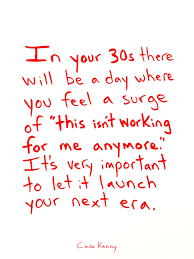 In your 30s there
will be a day where
you feel a surge
of "this isn't working
for me anymore."
It's very important
to let it launch
your next era.
Case Kenny